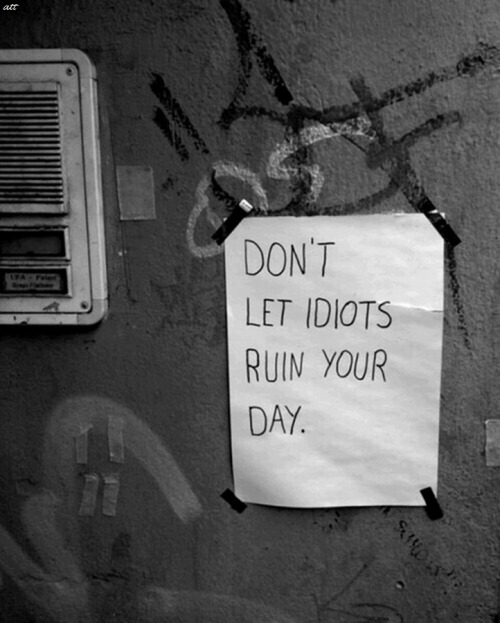 att
DON'T
LET IDIOTS
RUIN YOUR
DAY.